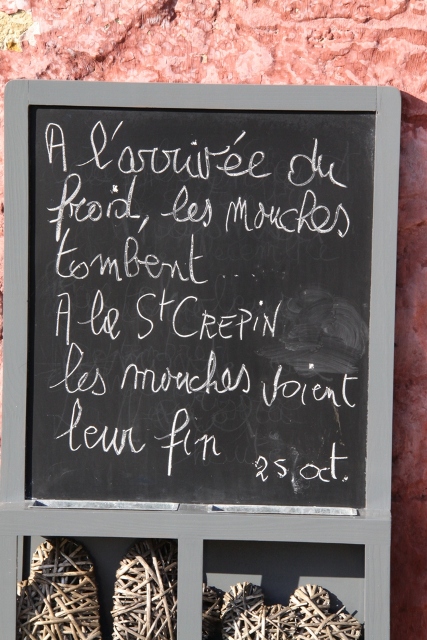 A l'arrivée du
froid, les mouches
tombent ...
A la St CREPIN
les mouches voient
leur fin
25 oct.